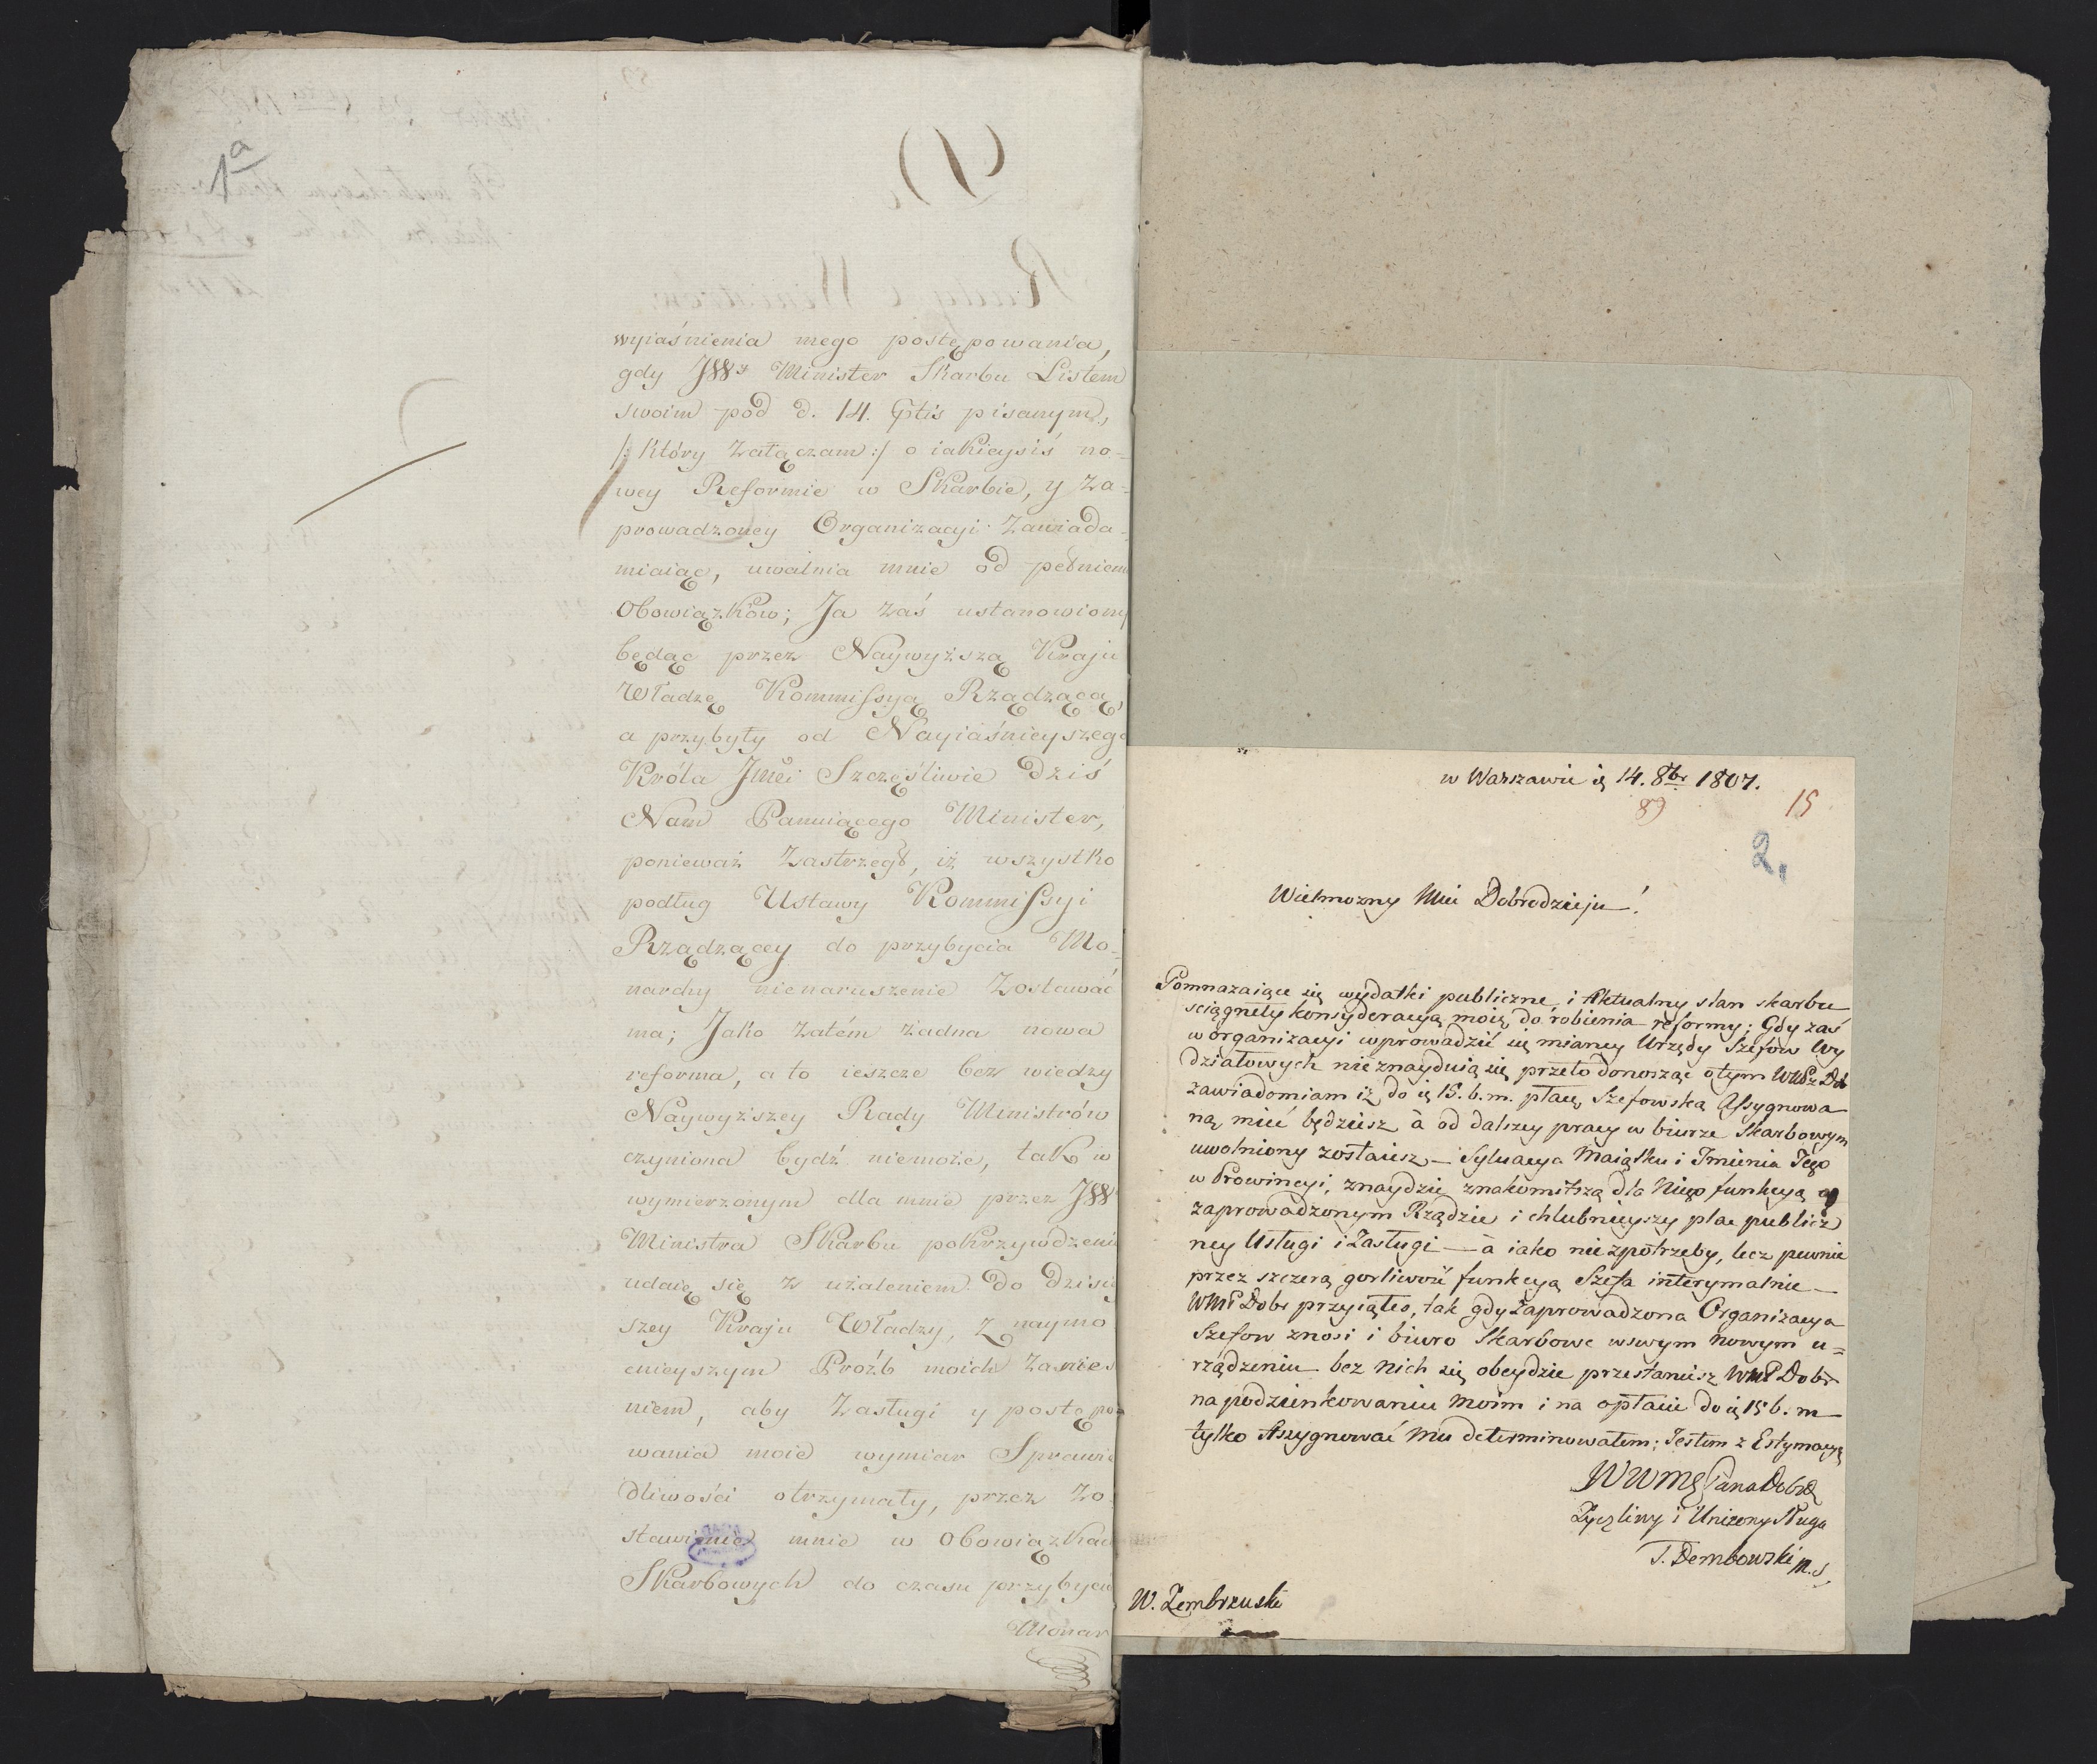 1a
wyiaśnienia mego postępowania,
gdy JWy Minister Skarbu Listem
swoim pod d. 14. 8btis pisanym,
/: który załączam :/ o iakieysiś no=
wey Reformie w Skarbie, y za=
prowadzoney Organizacyi zawiada=
miaiąc, uwalnia mnie od pełnienia
Obowiązków; Ja zaś ustanowiony
będąc przez Naywyższą Kraju
Władzę Kommissyą Rządzącą,
a przybyły od Nayiaśnieyszego
Króla Jmci Szczęśliwie dziś
Nam Panuiącego Minister,
ponieważ zastrzegł, iż wszystko
podług Ustawy Kommissyi
Rządzącey do przybycia Mo=
narchy nienaruszenie zostawać
ma; Jako zatém żadna nowa
reforma, a to ieszcze bez wiedzy
Naywyższey Rady Ministrów
czyniona bydź niemoże, tak w
wymierzonym dla mnie przez JW
Ministra Skarbu pokrzywdzeniu
udaię się z użaleniem do dzisiey
szey Kraju Władzy, z naymo
cnieyszym Proźb moich zaniesie
niem, aby Zasługi y postępo
wania moie wymiar Sprawie
dliwości otrzymały, przez Zo
stawienie mnie w Obowiązkach
Skarbowych do czasu przybycia
Monar
w Warszawie d. 14. 8br 1807.
89
15
2.
Wielmozny Mci Dobrodzieju!
Pomnazaiące się wydatki publiczne i Aktualny stan skarbu
sciągneły konsyderacyą moię do robienia reformy; Gdy zaś
w organizacyi wprowadzić się mianey Urzędy Szefow Wy
działowych nie znayduią się przeto donosząc o tym WMPz Db
zawiadomiam iż do d. 15. b. m. płacę Szefowską Assygnowa
ną mieć będziesz à od dalszey pracy w biurze Skarbowym
uwolniony zostaiesz — Sytuacya Maiątku i Imienia Jego
w Prowincyi, znaydzie znakomitszą dla Niego funkcyą w
zaprowadzonym Rządzie i chlubnieyszy plac publicz
ney Usługi i Zasługi — à iako nie z potrzeby, lecz pewnie
przez szczerą gorliwość funkcyą Szefa interymalnie —
WMP Dobr przyiąłeś, tak gdy zaprowadzona Organizacya
Szefow znosi i biuro Skarbowe w swym nowym u=
rządzeniu bez nich się obeydzie przestaniesz WMP Dobr
na podzienkowaniu moim i na opłacie do d. 15 b. m
tylko Assygnować mu determinowałem; Jestem z Estymacyą
WWMę Pana Dobrę
Zyczliwy i Unizony Sługa
T. Dembowski M.S.
W. Zembrzuski